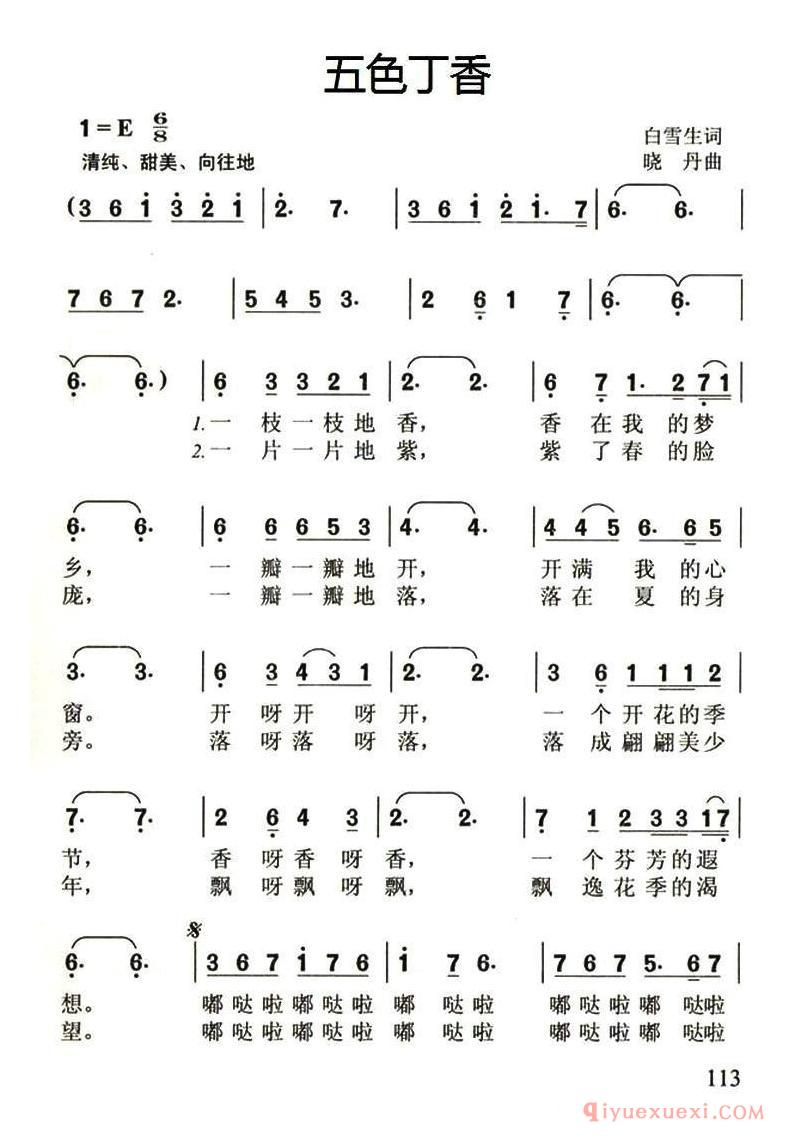 五色丁香
1=E 6/8
白雪生词
清纯、甜美、向往地
晓 丹曲
(3 6 i 3 2 i | 2. 7. | 3 6 i 2 i. 7 | 6. 6. |
7 6 7 2. | 5 4 5 3. | 2 6 1 7 | 6. 6. |
6. 6. ) | 6 3 3 2 1 | 2. 2. | 6 7 1. 2 7 1 |
1.一 枝一枝地 香, 香 在我 的梦
2.一 片一片地 紫, 紫 了春 的脸
6. 6. | 6 6 6 5 3 | 4. 4. | 4 4 5 6. 6 5 |
乡, 一 瓣一瓣地 开, 开满 我 的心
庞, 一 瓣一瓣地 落, 落在 夏 的身
3. 3. | 6 3 4 3 1 | 2. 2. | 3 6 1 1 1 2 |
窗。 开 呀开 呀 开, 一 个开花的季
旁。 落 呀落 呀 落, 落 成翩翩美少
7. 7. | 2 6 4 3 | 2. 2. | 7 1 2 3 3 1 7 |
节, 香 呀香 呀 香, 一 个芬芳的遐
年, 飘 呀飘 呀 飘, 飘 逸花季的渴
6. 6. | 3 6 7 i 7 6 | i 7 6. | 7 6 7 5. 6 7 |
想。 嘟哒啦嘟哒啦 嘟 哒啦 嘟哒啦嘟 哒啦
望。 嘟哒啦嘟哒啦 嘟 哒啦 嘟哒啦嘟 哒啦
113
qiyuexuexi.com